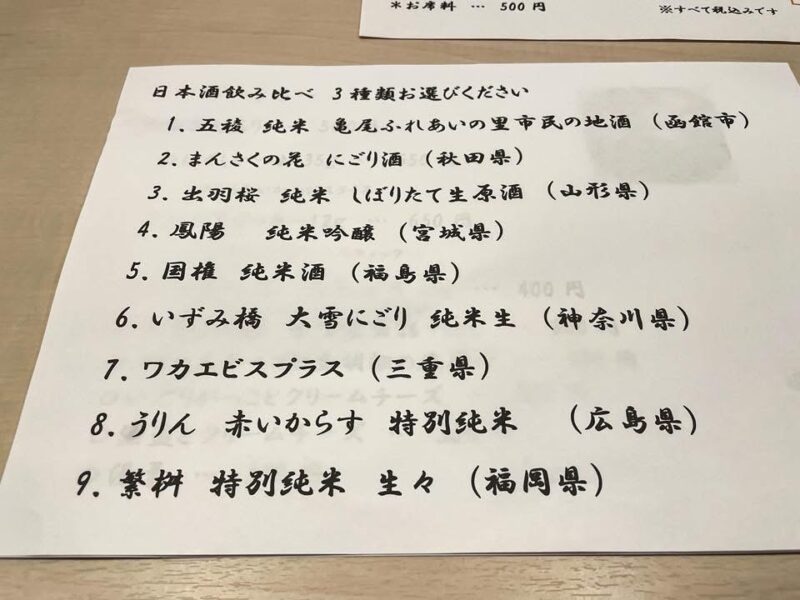 *お席料 … 500 円 ※すべて税込みです
日本酒飲み比べ 3種類お選びください
1. 五稜 純米 亀尾ふれあいの里市民の地酒 (函館市)
2. まんさくの花 にごり酒 (秋田県)
3. 出羽桜 純米 しぼりたて生原酒 (山形県)
4. 鳳陽 純米吟醸 (宮城県)
5. 国権 純米酒 (福島県)
6. いずみ橋 大雪にごり 純米生 (神奈川県)
7. ワカエビスプラス (三重県)
8. うりん 赤いからす 特別純米 (広島県)
9. 繁桝 特別純米 生々 (福岡県)